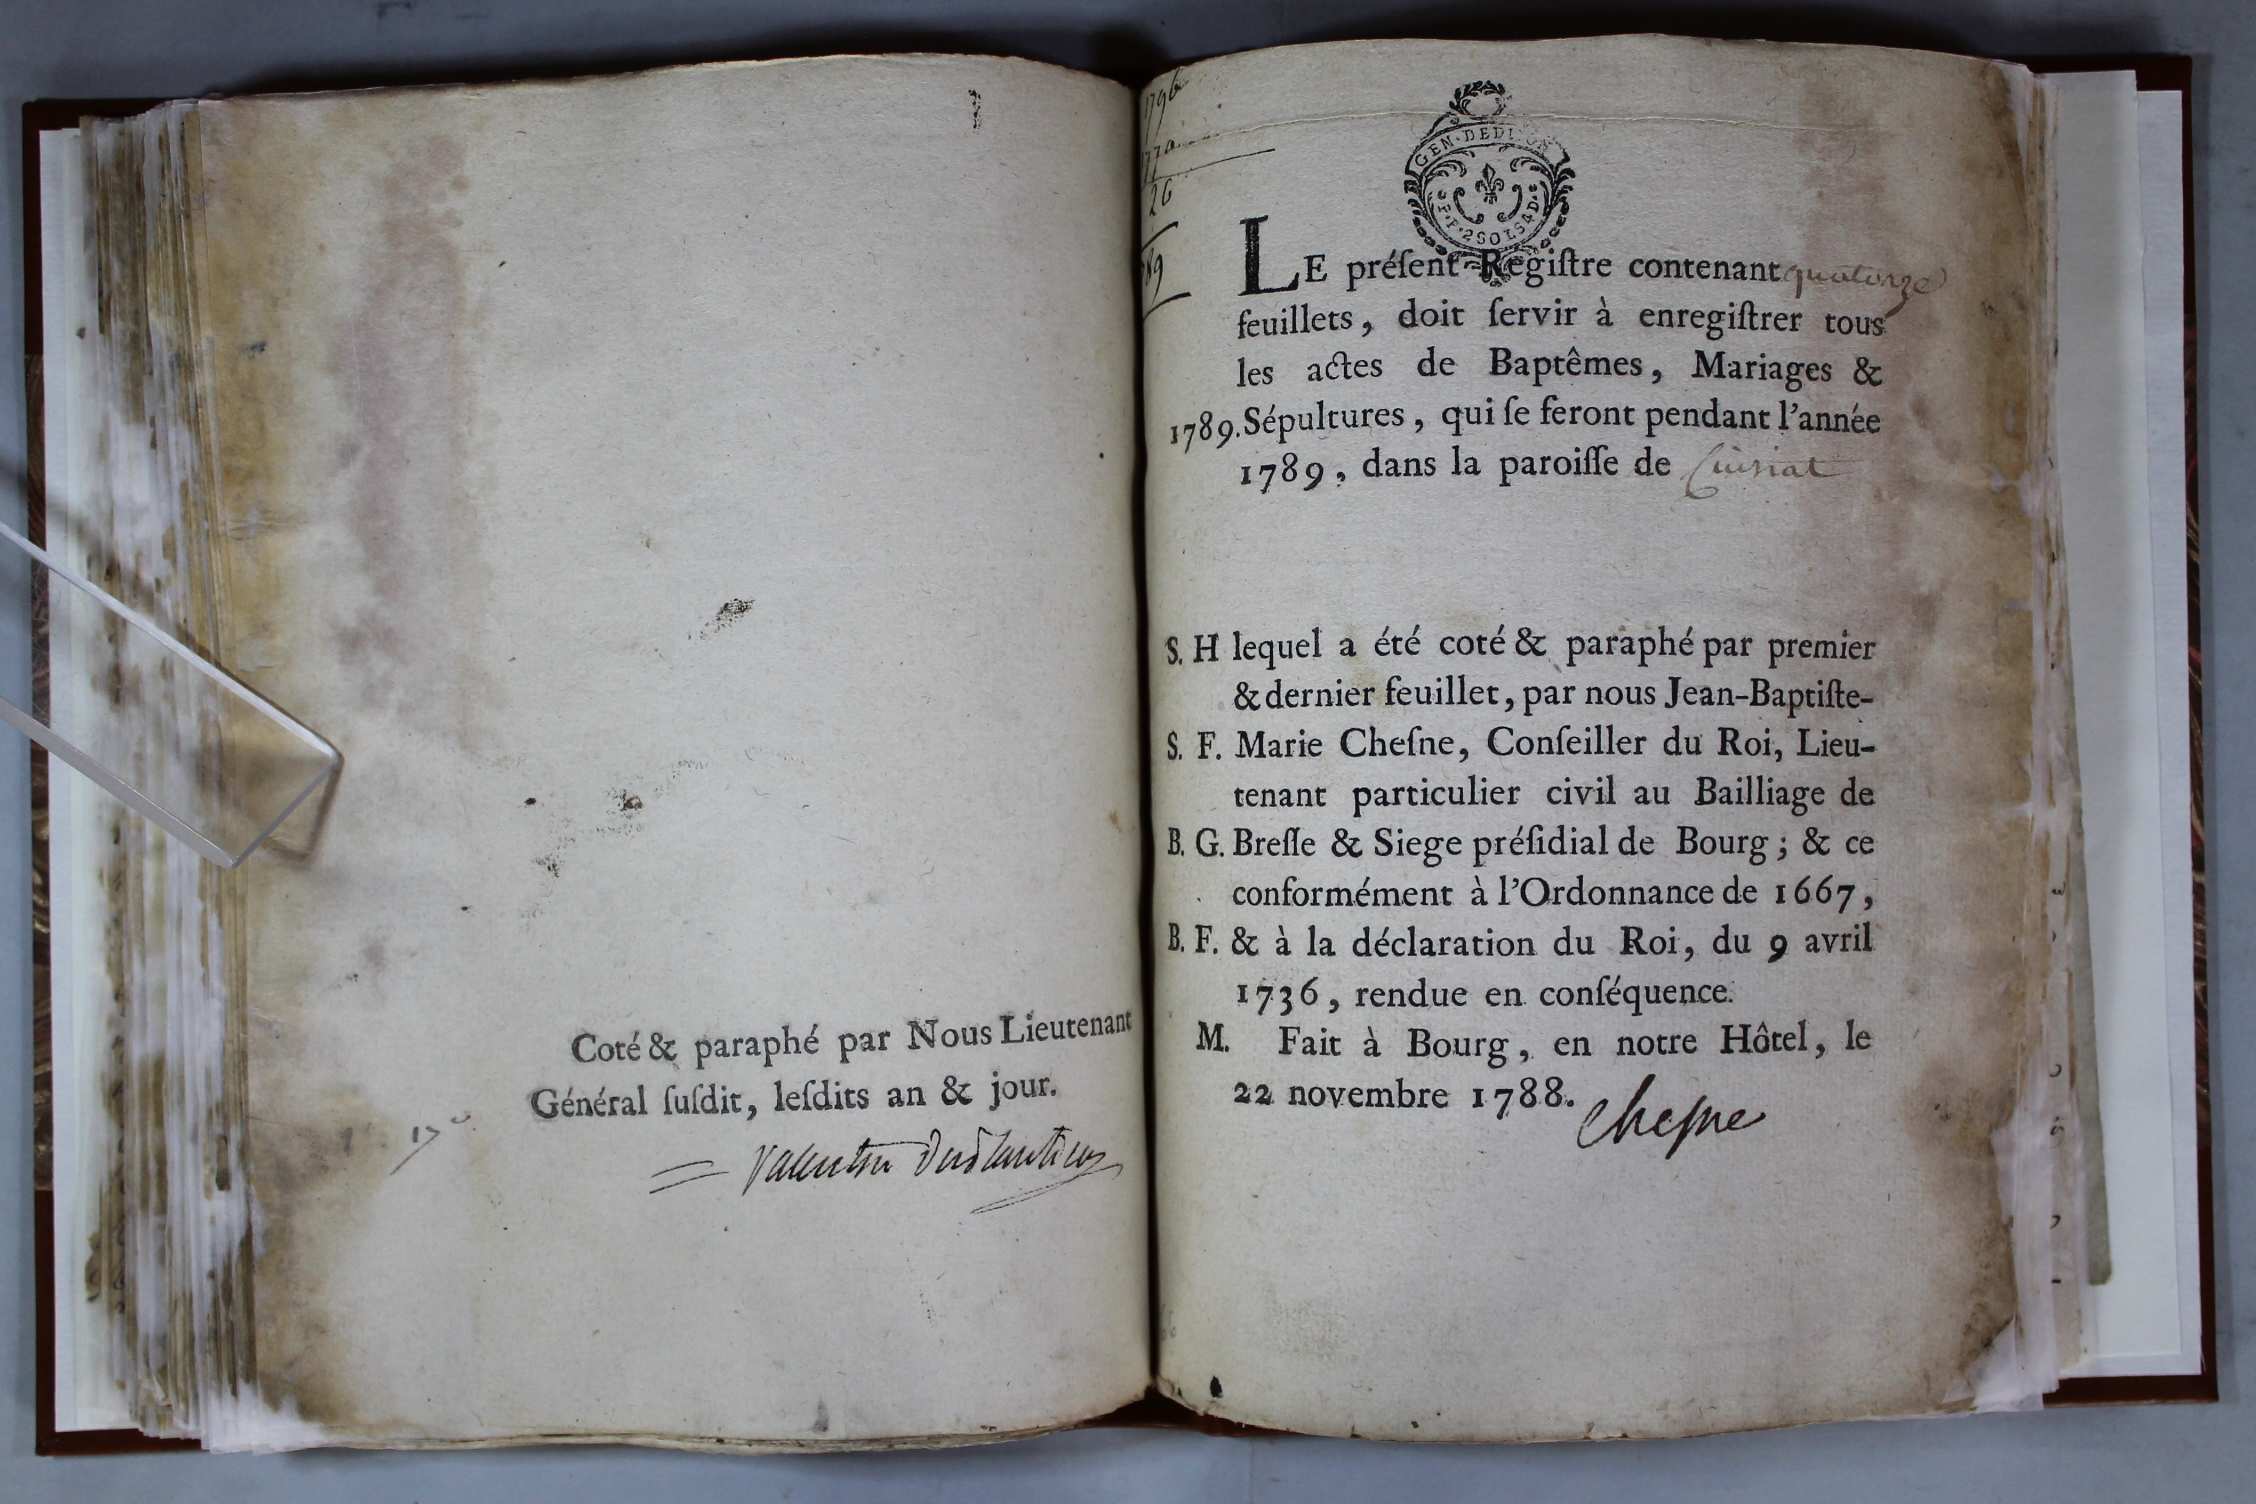 Coté & paraphé par Nous Lieutenant
Général ſuſdit, leſdits an & jour.
Valentin
1796
1770
26
89
GEN·DEDIJON
F·P·2SOLS4D·
LE préſent Regiſtre contenant quatorze
feuillets, doit ſervir à enregiſtrer tous
les actes de Baptêmes, Mariages &
1789. Sépultures, qui ſe feront pendant l'année
1789, dans la paroiſſe de Cuisiat
S. H lequel a été coté & paraphé par premier
& dernier feuillet, par nous Jean-Baptiſte-
S. F. Marie Cheſne, Conſeiller du Roi, Lieu-
tenant particulier civil au Bailliage de
B. G. Breſſe & Siege préſidial de Bourg; & ce
conformément à l'Ordonnance de 1667,
B. F. & à la déclaration du Roi, du 9 avril
1736, rendue en conſéquence.
M. Fait à Bourg, en notre Hôtel, le
22 novembre 1788.
Cheſne